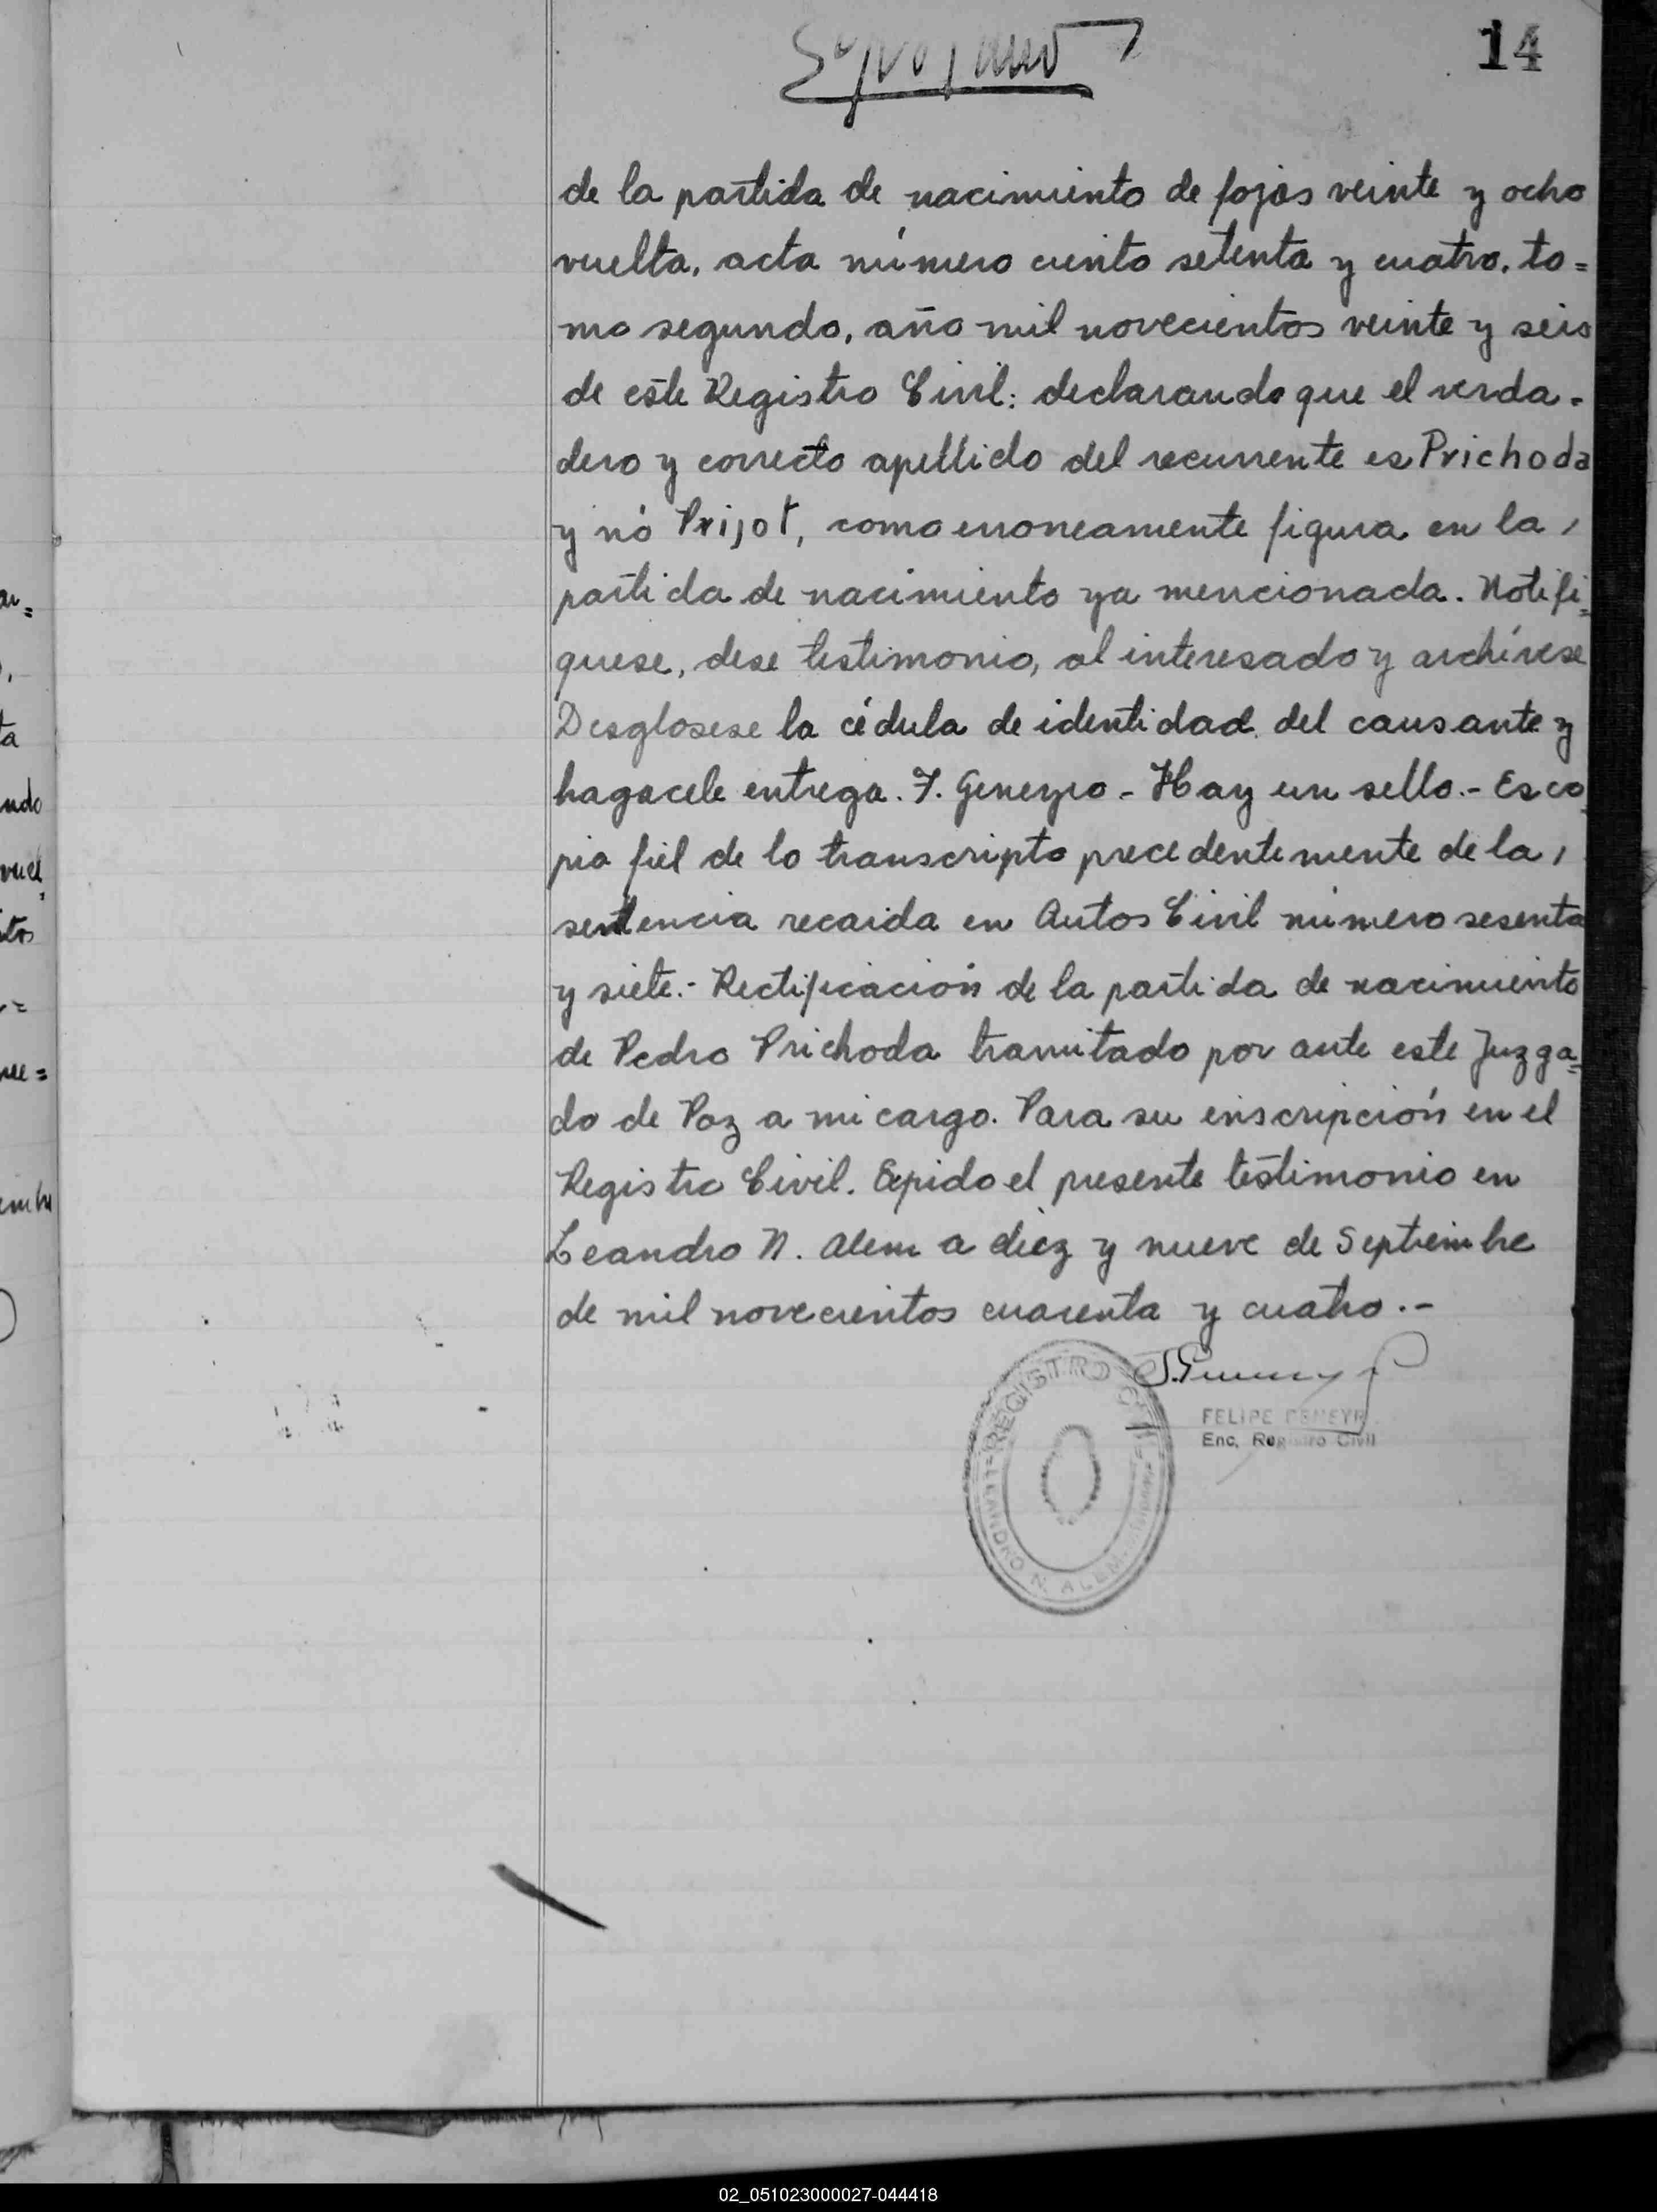 14
de la partida de nacimiento de fojas veinte y ocho
vuelta, acta número ciento setenta y cuatro, to=
mo segundo, año mil novecientos veinte y seis
de este Registro Civil: declarando que el verda-
dero y correcto apellido del recurrente es Prichoda
y nó Prijot, como erroneamente figura en la,
partida de nacimiento ya mencionada. Notifi=
quese, dese testimonio, al interesado y archívese
Desglosese la cédula de identidad del causante y
hagacele entrega. F. Geneyro - Hay un sello.- Es co
pia fiel de lo transcripto precedentemente de la,
sentencia recaida en Autos Civil número sesenta
y siete.- Rectificación de la partida de nacimiento
de Pedro Prichoda tramitado por ante este Juzga=
do de Paz a mi cargo. Para su inscripción en el
Registro Civil. Expido el presente testimonio en
Leandro N. Alem a diez y nueve de Septiembre
de mil novecientos cuarenta y cuatro.-
REGISTRO CIVIL
LEANDRO N. ALEM
FELIPE GENEYR
Enc. Registro Civil
ta
ndo
vuel
tos
02_051023000027-044418